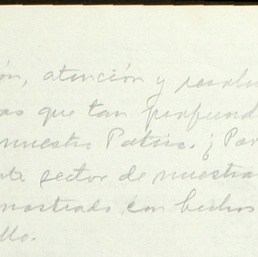 ón, atención y resolu
as que tan profund
nuestra Patria. ¡ Par
te sector de nuestra
mostrado con hechos
llo.